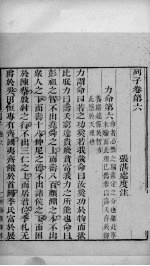 列子卷第六
張湛處度注
力命第六
力謂命曰若之功奚若我哉命曰汝奚功於物而欲
比朕力曰壽夭窮達貴賤貧富我力之所能也命曰
彭祖之智不出堯舜之上而壽八百顏淵之才不出
衆人之下而壽十八仲尼之德不出諸侯之下而困
於陳蔡殷紂之行不出三仁之上而居君位季札无
爵於吳田恒專有齊國夷齊餓於首陽季氏富於展